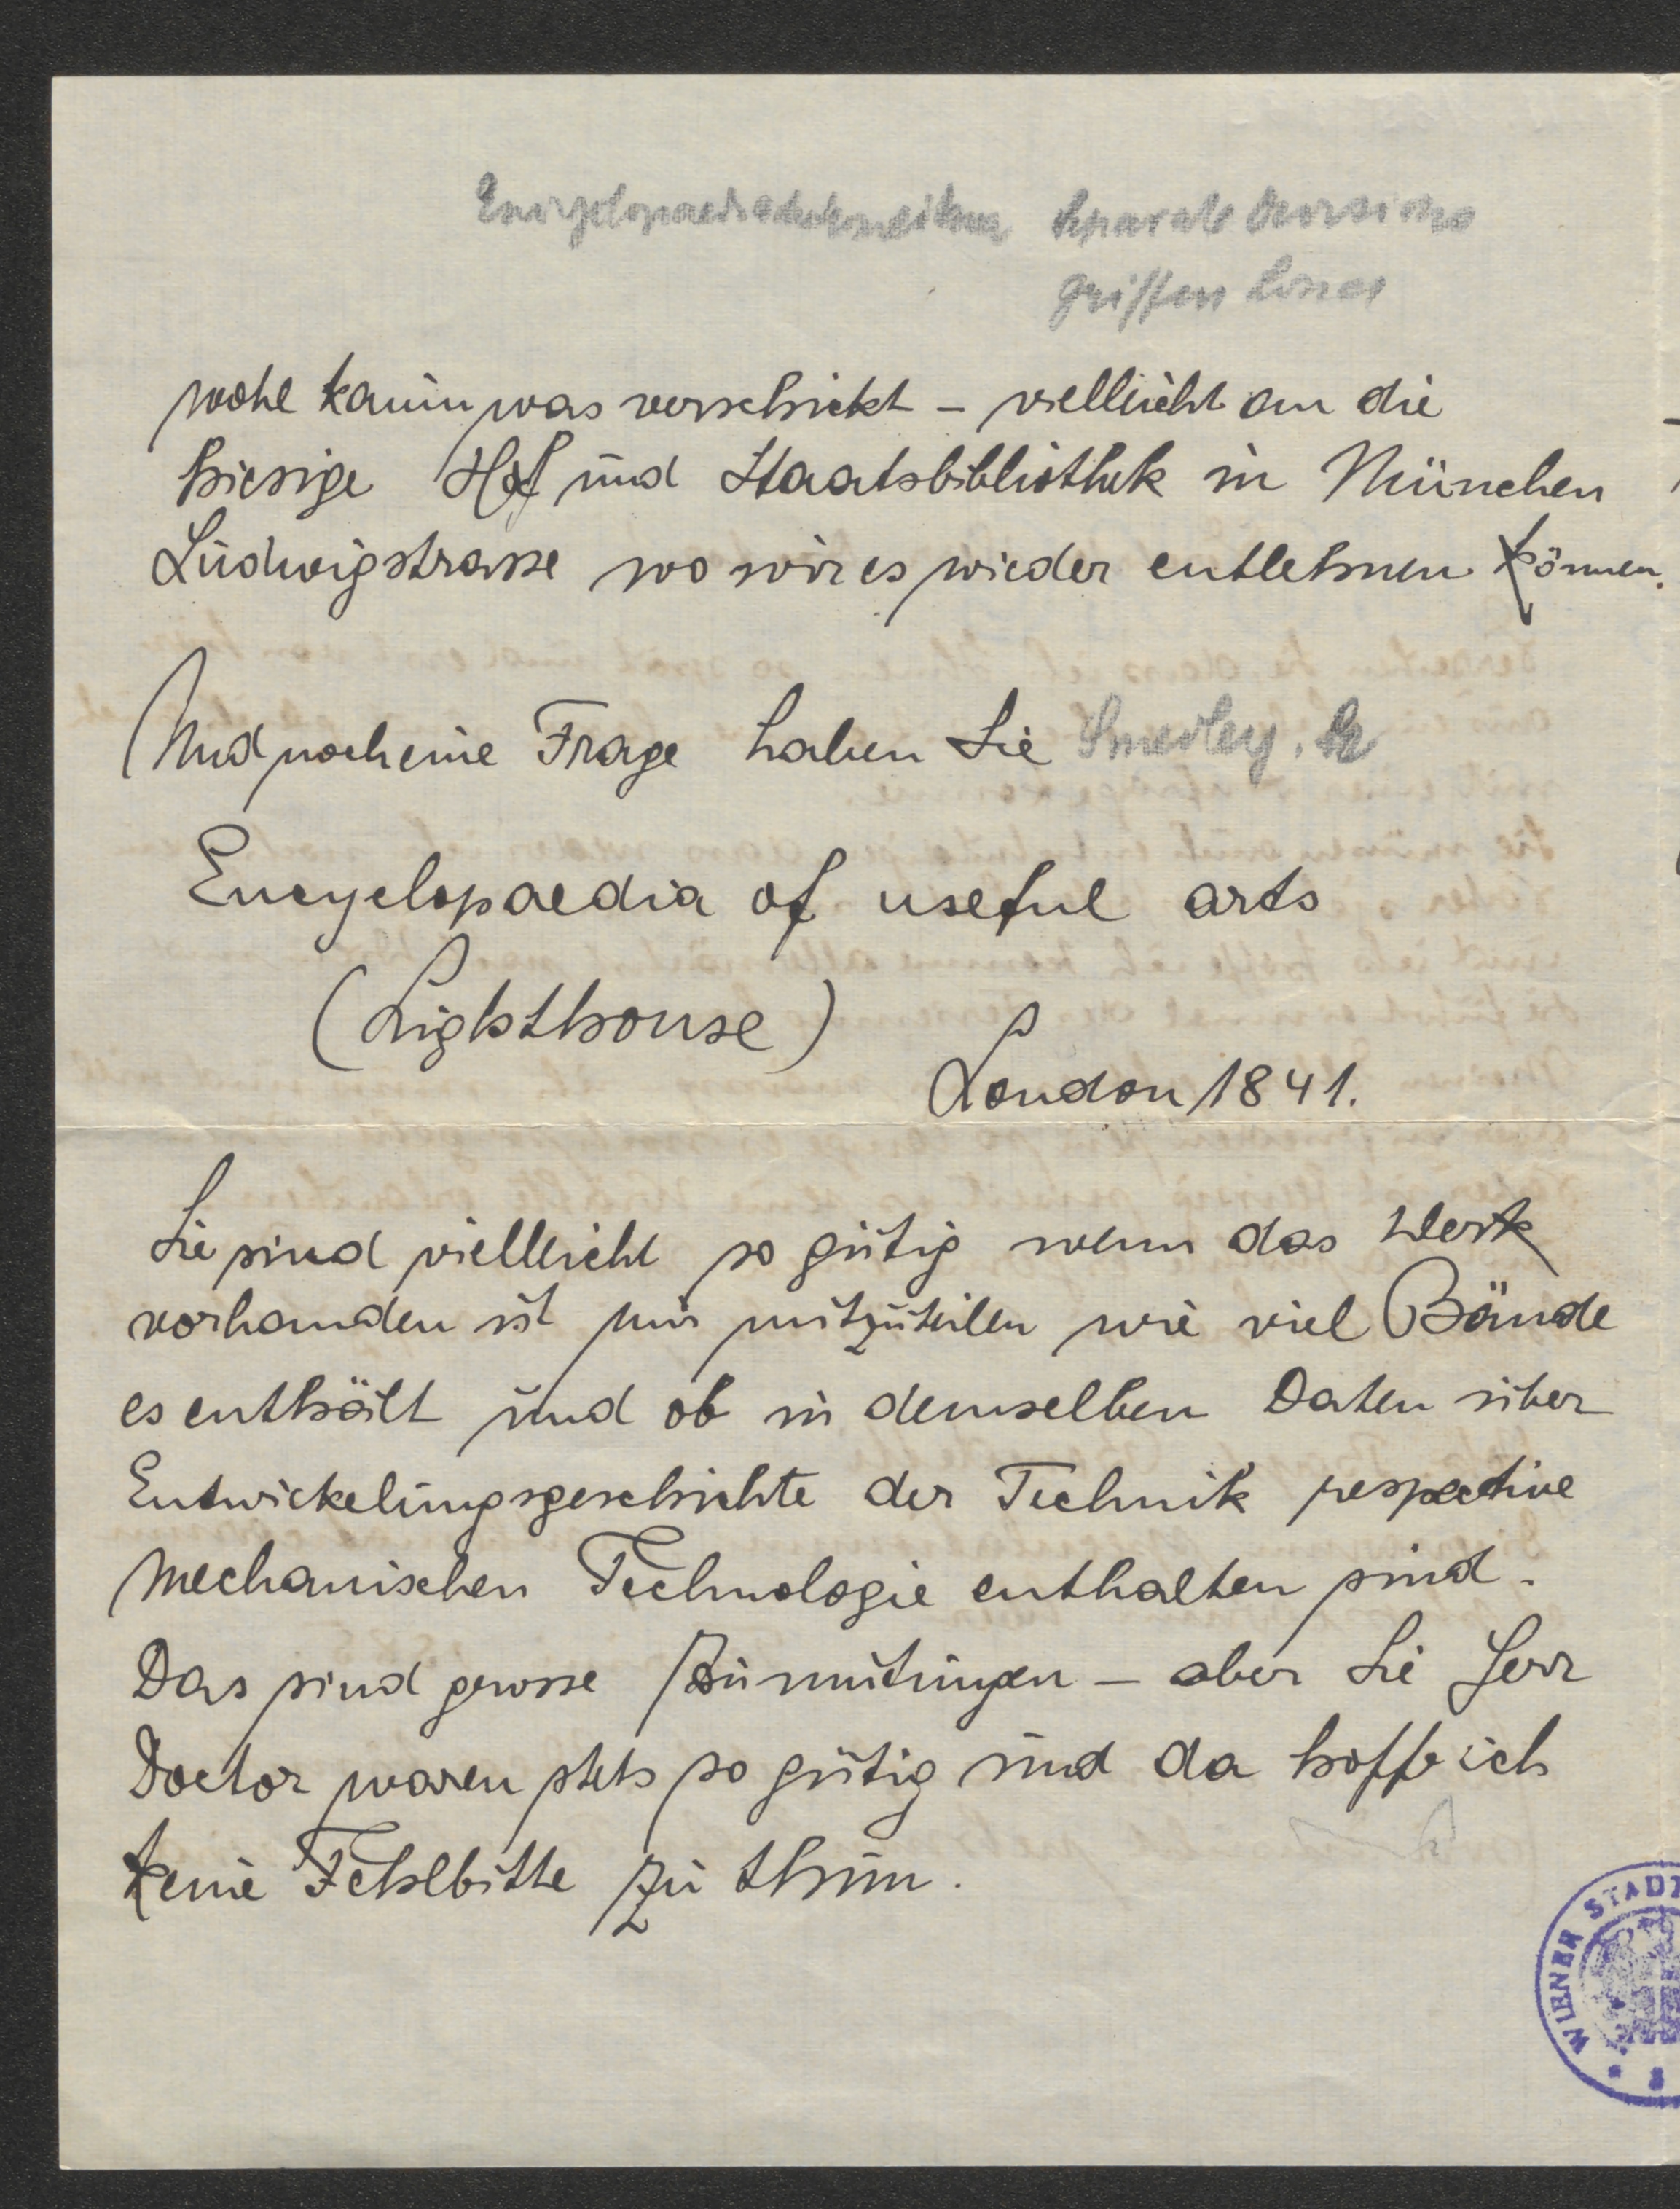 Encyclopaedia metropolitana Separate
Griffin London
wohl kaum was verschickt – vielleicht an die
hiesige Hof und Staatsbibliothek in München
Ludwigstrasse wo wir es wieder entlehnen können.
Und noch eine Frage haben Sie Smedley.
Encyclopaedia of useful arts
(Lighthouse)
London 1841.
Sie sind vielleicht so gütig wenn das Werk
vorhanden ist mir mitzuteilen wie viel Bände
es enthält und ob in demselben Daten über
Entwickelungsgeschichte der Technik respective
mechanischen Technologie enthalten sind.
Das sind grosse Zumutungen – aber Sie Herr
Doctor waren stets so gütig und da hoffe ich
keine Fehlbitte zu thun.
WIENER STADT